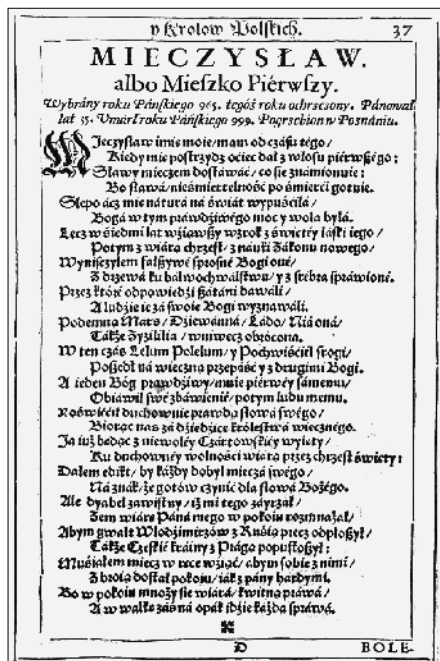 y Krolow Polskich. 37
MIECZYSŁAW.
albo Mieſzko Piérwſzy.
Wybrány roku Páńſkiego 965. tegóż roku ochrzcżony. Pánował
lat 35. Vmárł roku Páńſkiego 999. Pogrzebion w Poznániu.
MIeczyſław imię moie/ mam od czáſu tégo/
Kiedy mię poſtrzydz ociec dał z włoſu piérwſzégo:
Sławy mieczem doſtáwáć/ co ſię známionuie:
Bo ſława/ nieśmiertelność po śmierći gotuie.
Slépo ácz mię náturá ná świát wypuśćiłá/
Bogá w tym prawdźiwégo moc y wola byłá.
Lecz w śiedmi lat wźiąwſzy wzrok z świętéy łáſki iego/
Potym z wiárą chrzeſt/ z náuki Zakonu nowego/
Wyniſzczyłem fałſzywé ſproſné Bogi oné/
Z drzewá ku báłwochwálſtwu/ y z śrebrá ſpráwioné.
Przez któré odpowiedźi ßátáni dawáli/
A ludźie ie zá ſwoie Bogi wyznawáli.
Podemną Márs/ Dźiewánná/ Ládo/ Niá oná/
Tákże Zyźiliá/ wniwecz obrócona.
W ten czás Lelum Polelum/ y Pochwiśćiél ſrogi/
Poſzedł ná wieczną przepáść y z drugimi Bogi.
A ieden Bóg prawdźiwy/ mnie piérwéy ſámemu/
Obiáwił ſwé zbáwienié/ potym ludu memu.
Roświéćił duchownie prawdą ſłowá ſwégo/
Biorąc nas zá dźiedźice króleſtwá wiecznégo.
Ja iuż będąc z niewoléy Czártowſkiéy wyięty/
Ku duchownéy wolnośći wiárą przez chrzeſt święty:
Dałem edikt/ by káżdy dobył mieczá ſwégo/
Ná znák/ że gotów czynić dla ſłowá Bożégo.
Ale dyabeł zawiſtny/ iż mi tego záyrzał/
Zem wiárę Páná mego w pokoiu rozmnażał/
Abym gwałt Włodźimiérzów z Ruśią precz odpłoßył/
Tákże Czeſkié kráiny z Prágą popuſtoßył:
Muśiałem miecz w ręce wźiąć/ ábym ſobie z nimi/
Z broią doſtał pokoiu/ iák z pány hárdymi.
Bo w pokoiu mnoży ſię wiárá/ kwitną práwá/
A w walkę záś ná opák idźie káżda ſpráwá.
D BOLE-